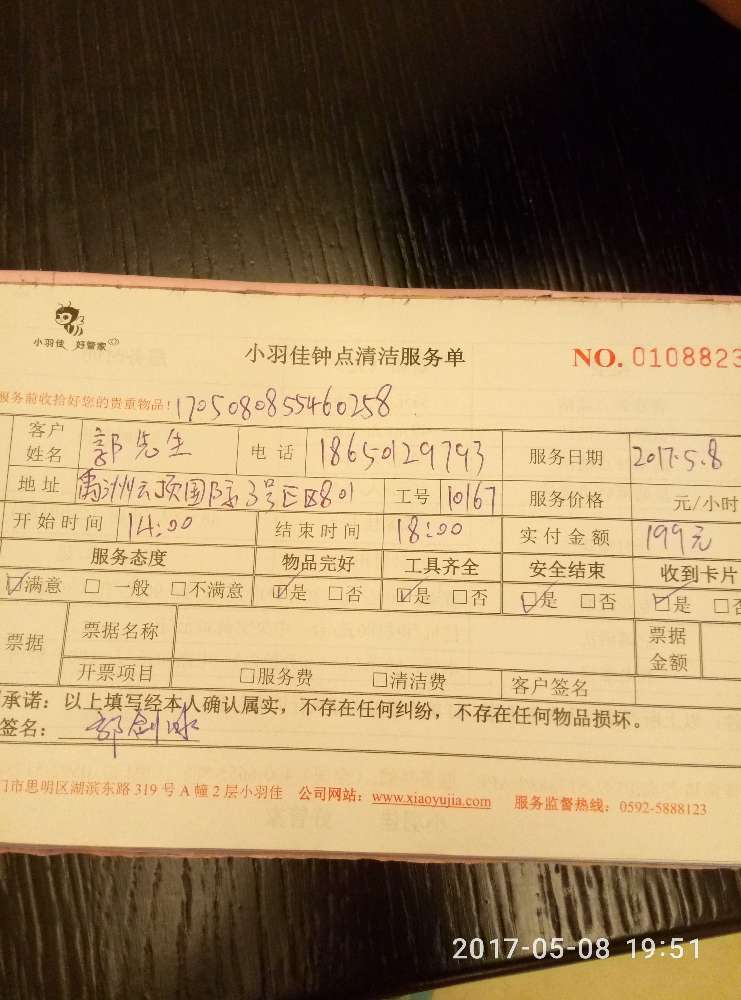 小羽佳 好管家
小羽佳钟点清洁服务单
NO. 0108823
服务前收拾好您的贵重物品! 1705080855460258
客户姓名 郭先生 电话 18650129793 服务日期 2017.5.8
地址 禹洲云顶国际3号E区801 工号 10167 服务价格 元/小时
开始时间 14:00 结束时间 18:00 实付金额 199元
服务态度 物品完好 工具齐全 安全结束 收到卡片
☑满意 □一般 □不满意 ☑是 □否 ☑是 □否 ☑是 □否 ☑是 □否
票据 票据名称 票据金额
开票项目 □服务费 □清洁费 客户签名
承诺：以上填写经本人确认属实，不存在任何纠纷，不存在任何物品损坏。
签名：
门市思明区湖滨东路 319 号 A 幢 2 层小羽佳 公司网站：www.xiaoyujia.com 服务监督热线：0592-5888123
2017-05-08 19:51